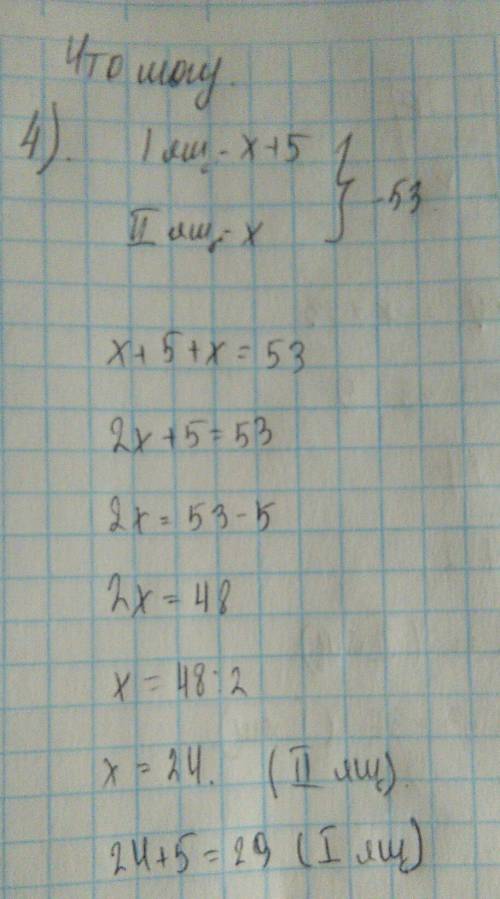 Что могу.
4). I ящ. - x+5 } - 53
II ящ. - x
x+5+x=53
2x+5=53
2x=53-5
2x=48
x=48:2
x=24. (II ящ).
24+5=29 (I ящ)